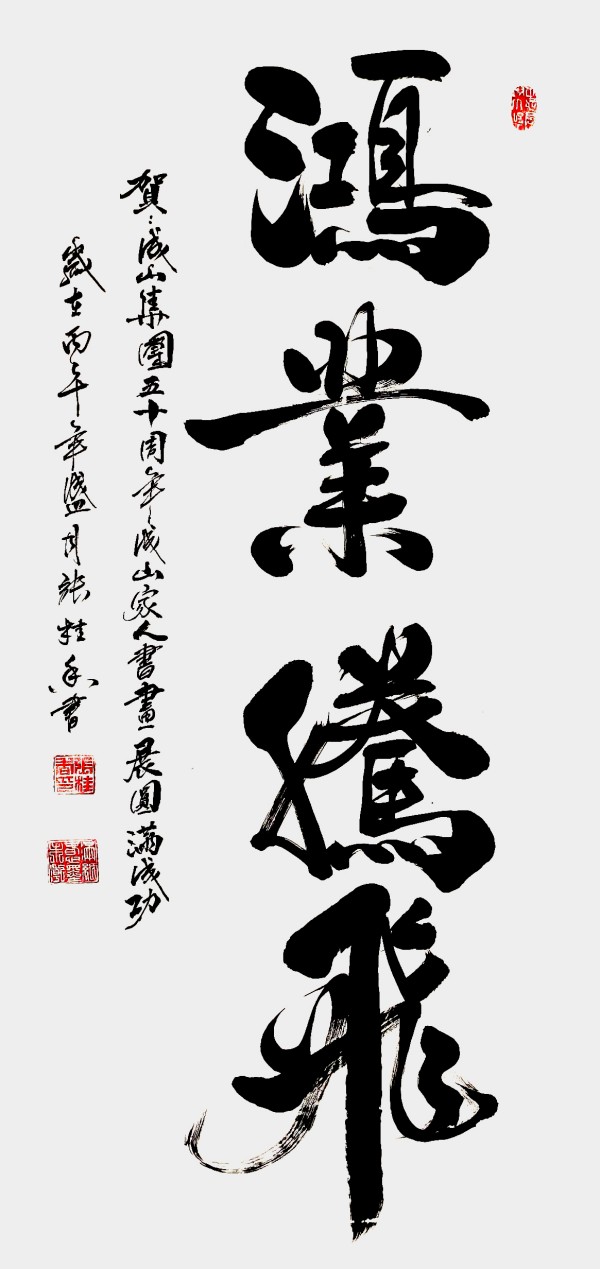 鴻業騰飛
賀：成山集團五十周年：成山家人書畫展圓滿成功
歲在丙午年盛月張桂香書
張桂香印